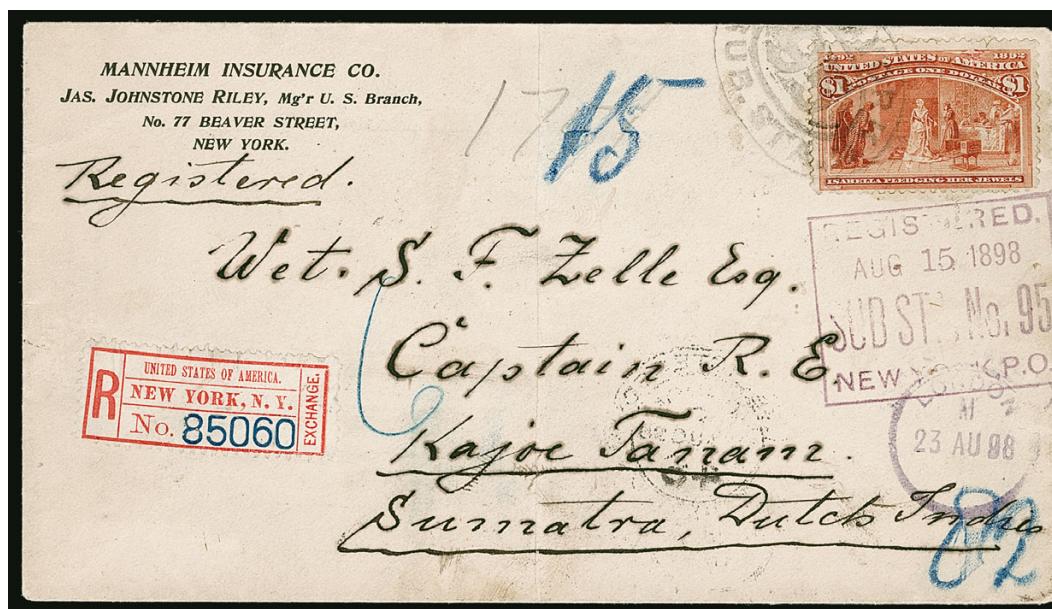 MANNHEIM INSURANCE CO.
JAS. JOHNSTONE RILEY, Mg'r U. S. Branch,
No. 77 BEAVER STREET,
NEW YORK.
Registered.
15
1492 1892
UNITED STATES OF AMERICA
POSTAGE ONE DOLLAR
$1 $1
ISABELLA PLEDGING HER JEWELS
REGISTERED.
AUG 15 1898
SUB STA. No. 95
NEW YORK P.O.
Wet. S. F. Zelle Esq.
Captain R. E.
Kajoe Tanam.
Sumatra, Dutch Indies
R
UNITED STATES OF AMERICA.
NEW YORK, N. Y.
No. 85060
EXCHANGE.
LONDON
23 AU 98